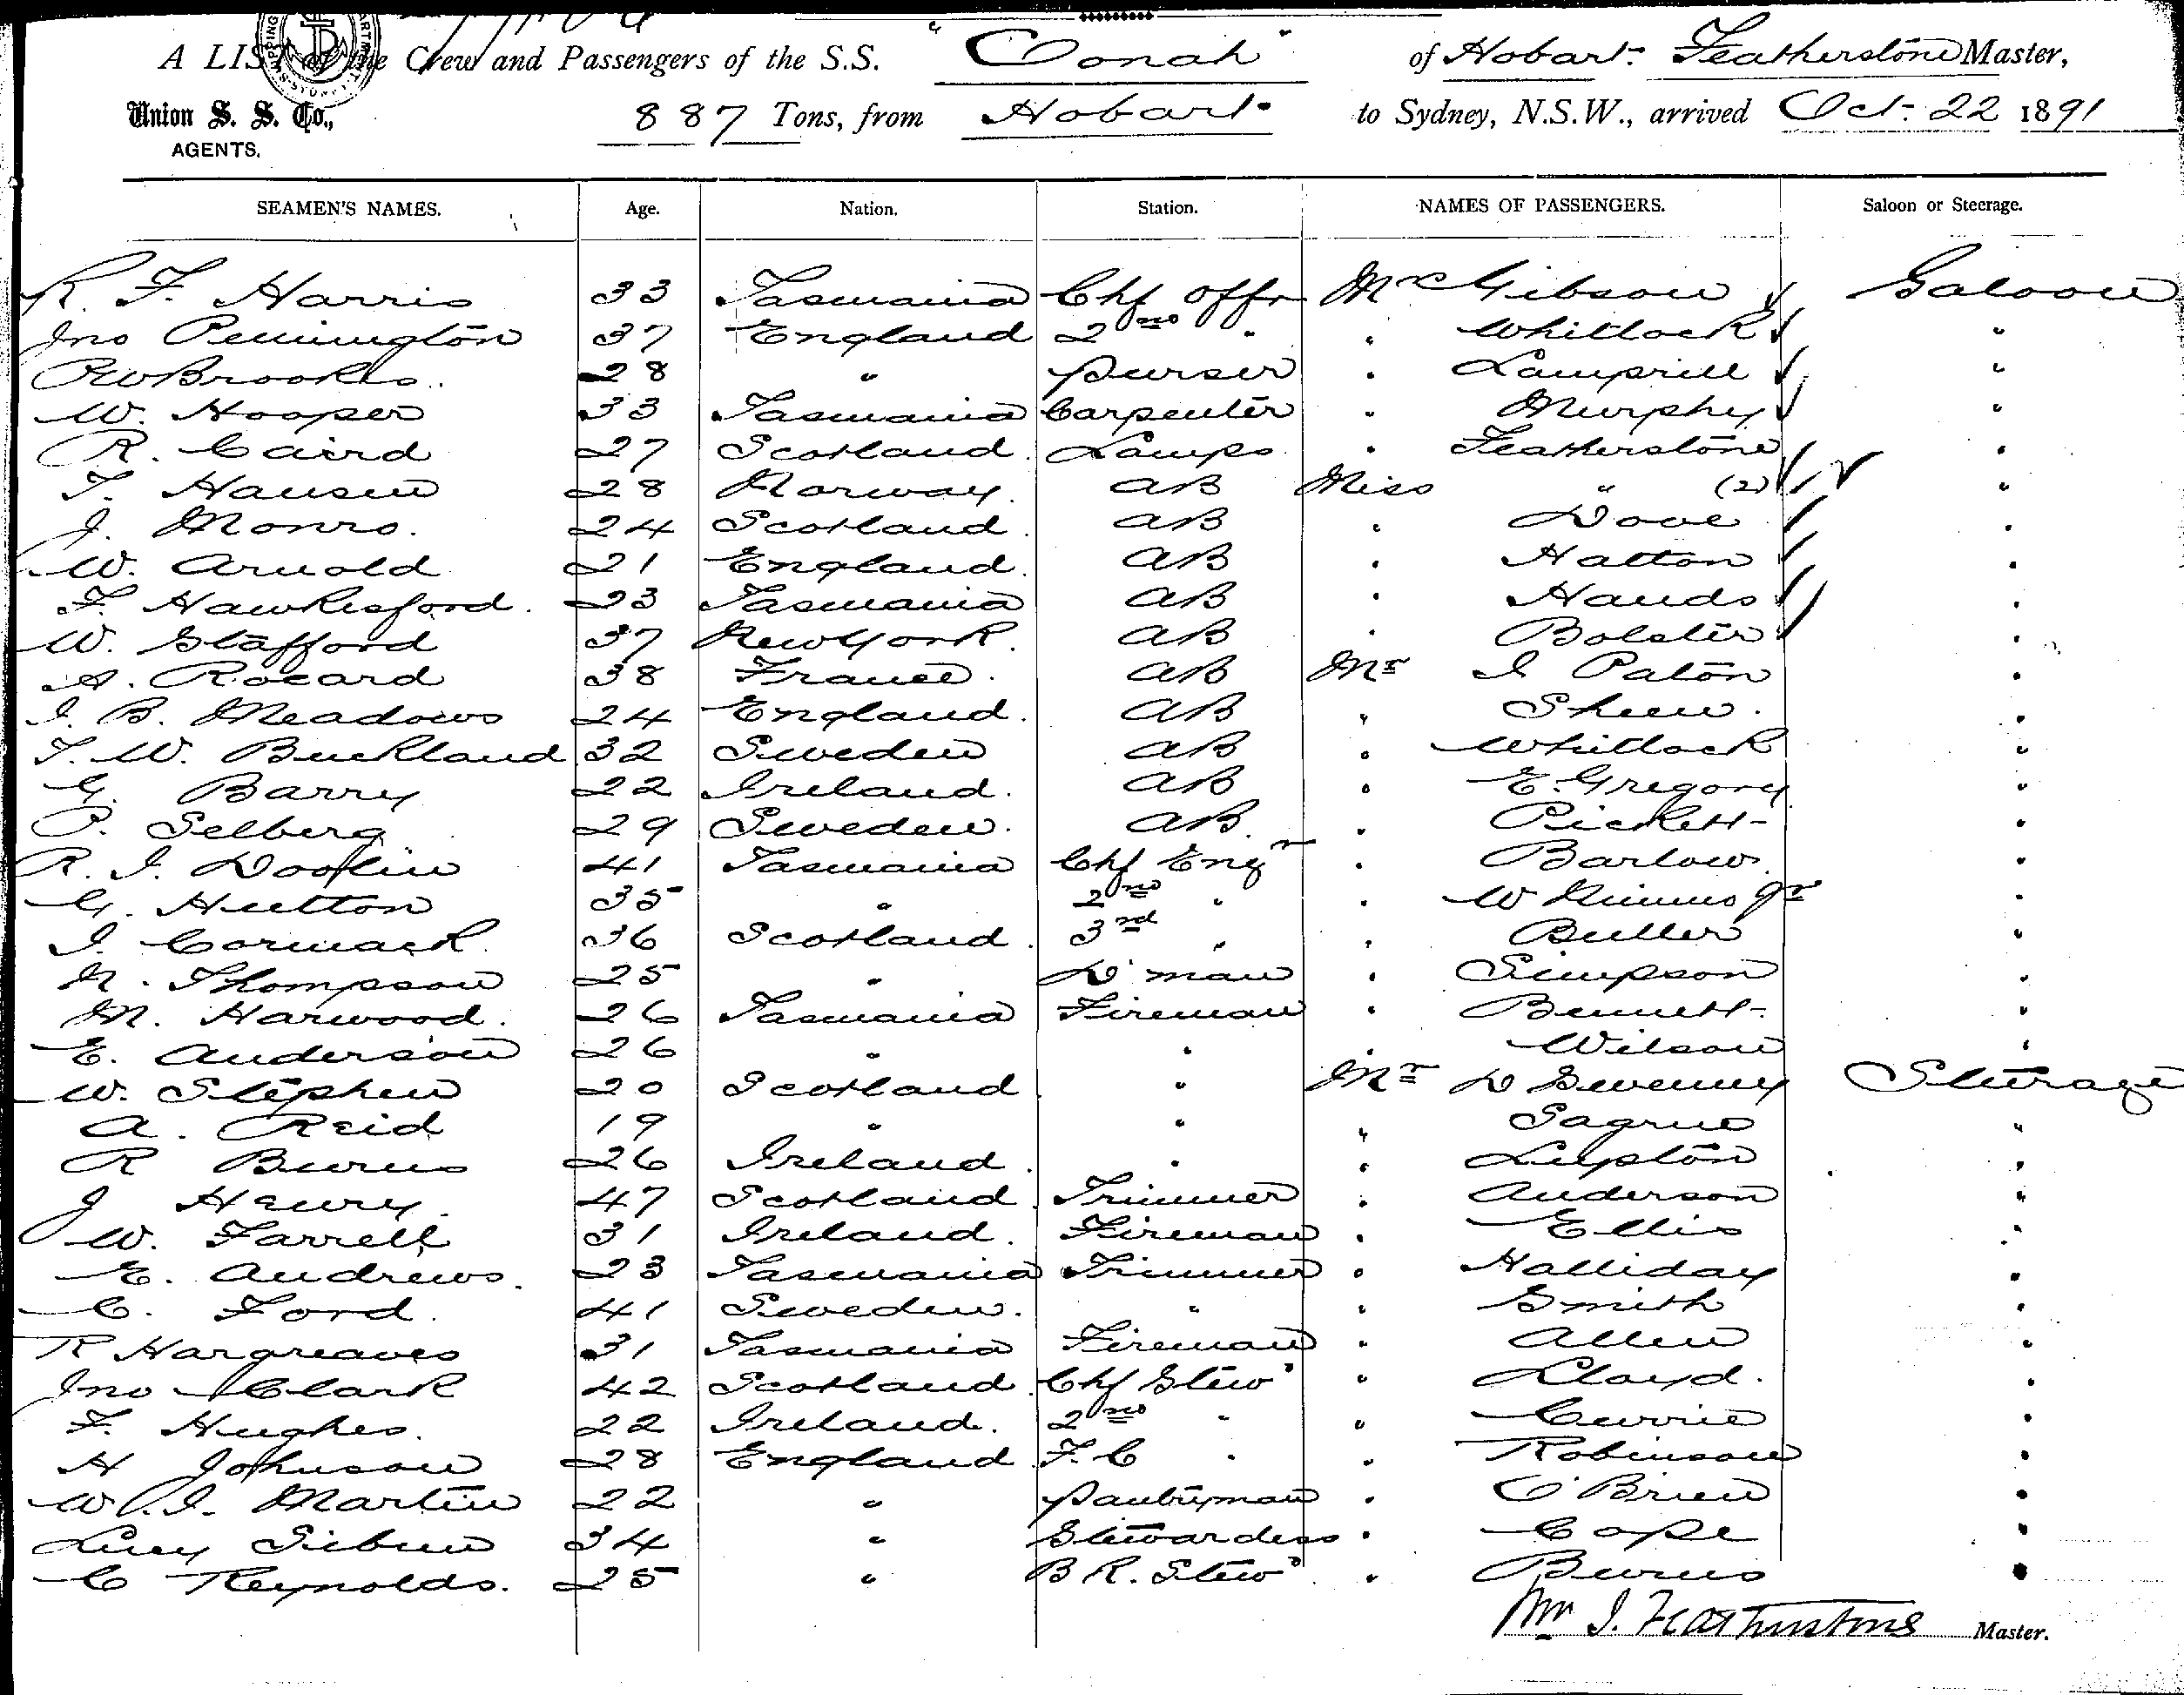 A LIST of the Crew and Passengers of the S.S. "Oonah" of Hobart Featherstone Master,
Union S. S. Co., 887 Tons, from Hobart to Sydney, N.S.W., arrived Oct. 22 1891
AGENTS.
SEAMEN'S NAMES. Age. Nation. Station. NAMES OF PASSENGERS. Saloon or Steerage.
R. F. Harris 33 Tasmania Chf Offr Mrs Gibson Saloon
Jno Pennington 37 England 2nd " " Whitlock "
RW Brookes 28 " Purser " Lamprill "
W. Hooper 33 Tasmania Carpenter " Murphy "
R. Caird 27 Scotland Lamps " Featherstone "
T. Hansen 28 Norway AB Miss " (2) "
J. Monro. 24 Scotland AB " Dove "
W. Arnold 21 England AB " Hatton "
F. Hawkesford. 23 Tasmania AB " Hands "
W. Stafford 37 New York. AB " Bolster "
A. Rocard 38 France. AB Mr I Paton "
I. B. Meadows 24 England. AB " Sheen. "
T. W. Buckland 32 Sweden AB " Whitlock "
G. Barry 22 Ireland. AB " E. Gregory "
P. Selberg 29 Sweden. AB. " Pickett "
R. J. Dooflin 41 Tasmania Chf Engr " Barlow "
G. Hutton 35 " 2nd " " W Nimmo Jr "
I. Cormack. 36 Scotland. 3rd " " Butler "
N. Thompson 25 " D'man " Simpson "
M. Harwood. 26 Tasmania Fireman " Bennett "
E. Anderson 26 " " " Wilson "
W. Stephen 20 Scotland " Mr D Sweeney Steerage
A. Reid 19 " " " Sagrue "
R Burns 26 Ireland. " " Lupton "
J Henry. 47 Scotland Trimmer " Anderson "
W. Farrell 31 Ireland. Fireman " Ellis "
E. Andrews. 23 Tasmania Trimmer " Halliday "
C. Ford. 41 Sweden. " " Smith "
R Hargreaves 31 Tasmania Fireman " Allen "
Jno Clark 42 Scotland Chf Stew' " Lloyd. "
F. Hughes. 22 Ireland. 2nd " " Currie "
H Johnson 28 England F. C " " Robinson "
W. I. Martin 22 " Pantryman " O'Brien "
Lucy Sibun 34 " Stewardess " Cope "
C Reynolds. 25 " B R. Stew' " Burns "
Wm J. Featherstone Master.